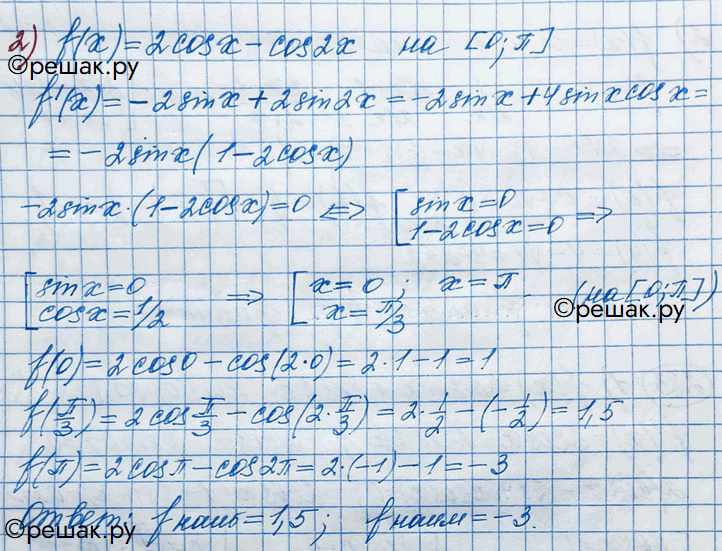 2) f(x)=2cosx-cos2x на [0;π]
©решак.ру
f'(x)=-2sinx+2sin2x=-2sinx+4sinxcosx=
=-2sinx(1-2cosx)
-2sinx·(1-2cosx)=0 <=> [sinx=0
1-2cosx=0 =>
[sinx=0
cosx=1/2 => [x=0; x=π
x=π/3 (на [0;π])
©решак.ру
f(0)=2cos0-cos(2·0)=2·1-1=1
f(π/3)=2cosπ/3-cos(2·π/3)=2·1/2-(-1/2)=1,5
f(π)=2cosπ-cos2π=2·(-1)-1=-3
Ответ: fнаиб=1,5; fнаим=-3.
©решак.ру